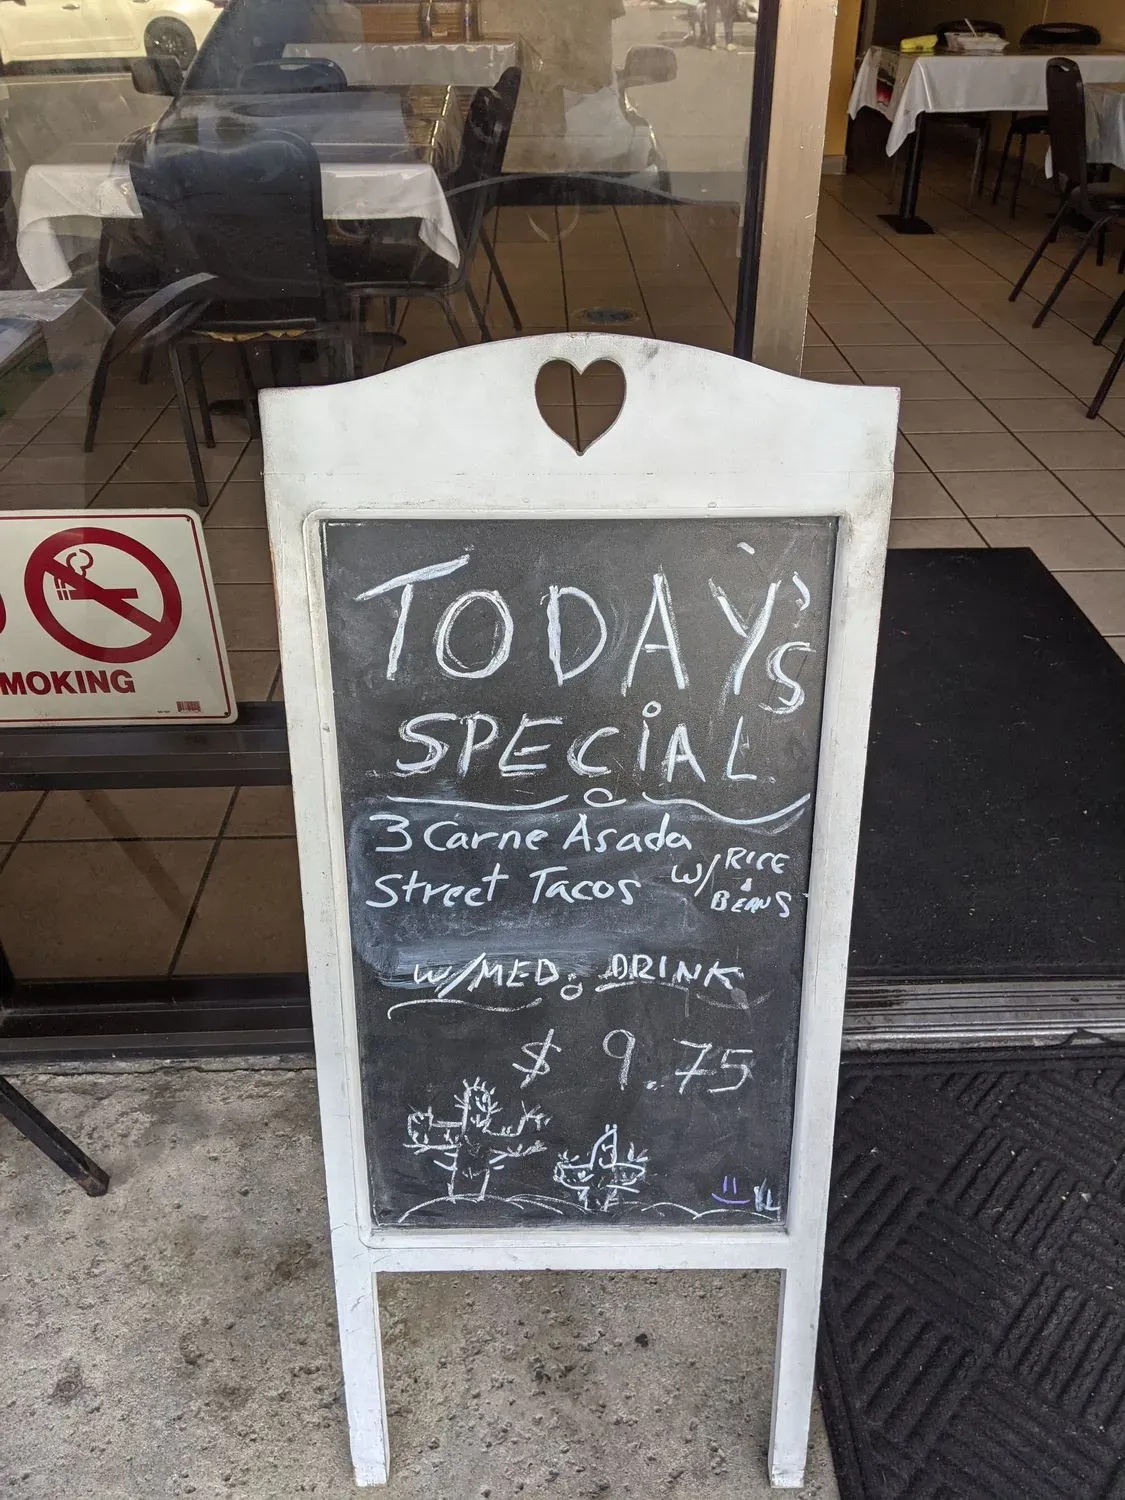 TODAY's
SPECiAL
3 Carne Asada
Street Tacos w/ RICE & BEANS
w/MED. DRINK
$ 9.75
MOKING